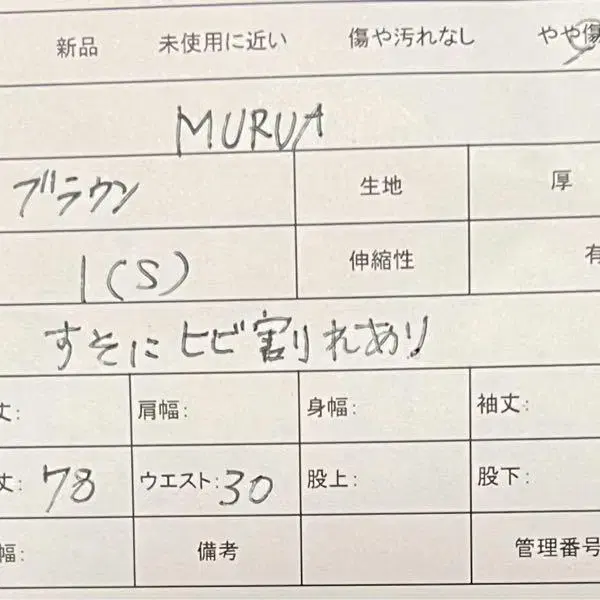 新品 未使用に近い 傷や汚れなし やや傷
MURUA
ブラウン 生地 厚
1(S) 伸縮性 有
すそにヒビ割れあり
丈: 肩幅: 身幅: 袖丈:
丈: 78 ウエスト: 30 股上: 股下:
幅: 備考 管理番号